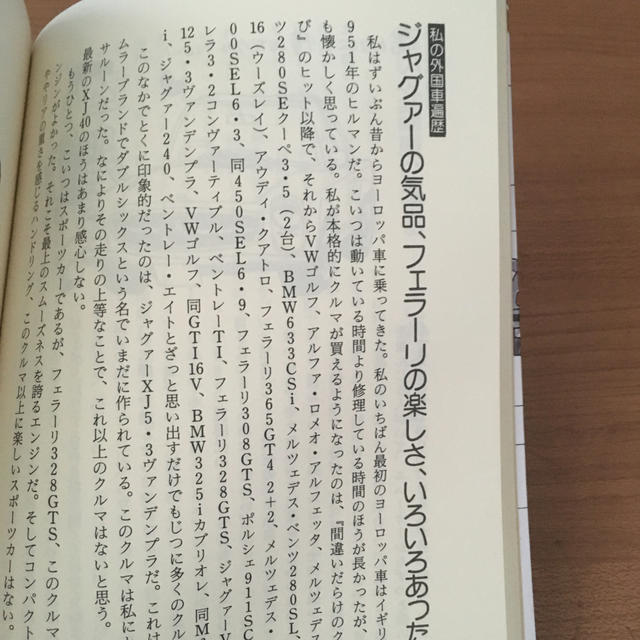 私の外国車遍歴
ジャグァーの気品、フェラーリの楽しさ、いろいろあった
私はずいぶん昔からヨーロッパ車に乗ってきた。私のいちばん最初のヨーロッパ車はイギリ
951年のヒルマンだ。こいつは動いている時間より修理している時間のほうが長かったが、
も懐かしく思っている。私が本格的にクルマが買えるようになったのは、『間違いだらけのク
び』のヒット以降で、それからVWゴルフ、アルファ・ロメオ・アルフェッタ、メルツェデス
ツ280SEクーペ3・5(2台)、BMW633CSi、メルツェデス・ベンツ280SL、
16(ウーズレイ)、アウディ・クアトロ、フェラーリ365GT4 2+2、メルツェデス・
00SEL6・3、同450SEL6・9、フェラーリ308GTS、ポルシェ911SC
レラ3・2コンヴァーティブル、ベントレーTI、フェラーリ328GTS、ジャグァー
125・3ヴァンデンプラ、VWゴルフ、同GTI16V、BMW325iカブリオレ、同M
i、ジャグァー240、ベントレー・エイトとざっと思い出すだけでもじつに多くのクル
このなかでとくに印象的だったのは、ジャグァーXJ5・3ヴァンデンプラだ。これは
ムラーブランドでダブルシックスという名でいまだに作られている。このクルマは私に
サルーンだった。なによりその走りの上等なことで、これ以上のクルマはないと思う。
最新のXJ40のほうはあまり感心しない。
もうひとつ、こいつはスポーツカーであるが、フェラーリ328GTS、このクルマ
ンジンがよかった。それこそ最上のスムーズネスを誇るエンジンだ。そしてコンパクト
を感じるハンドリング、このクルマ以上に楽しいスポーツカーはない。